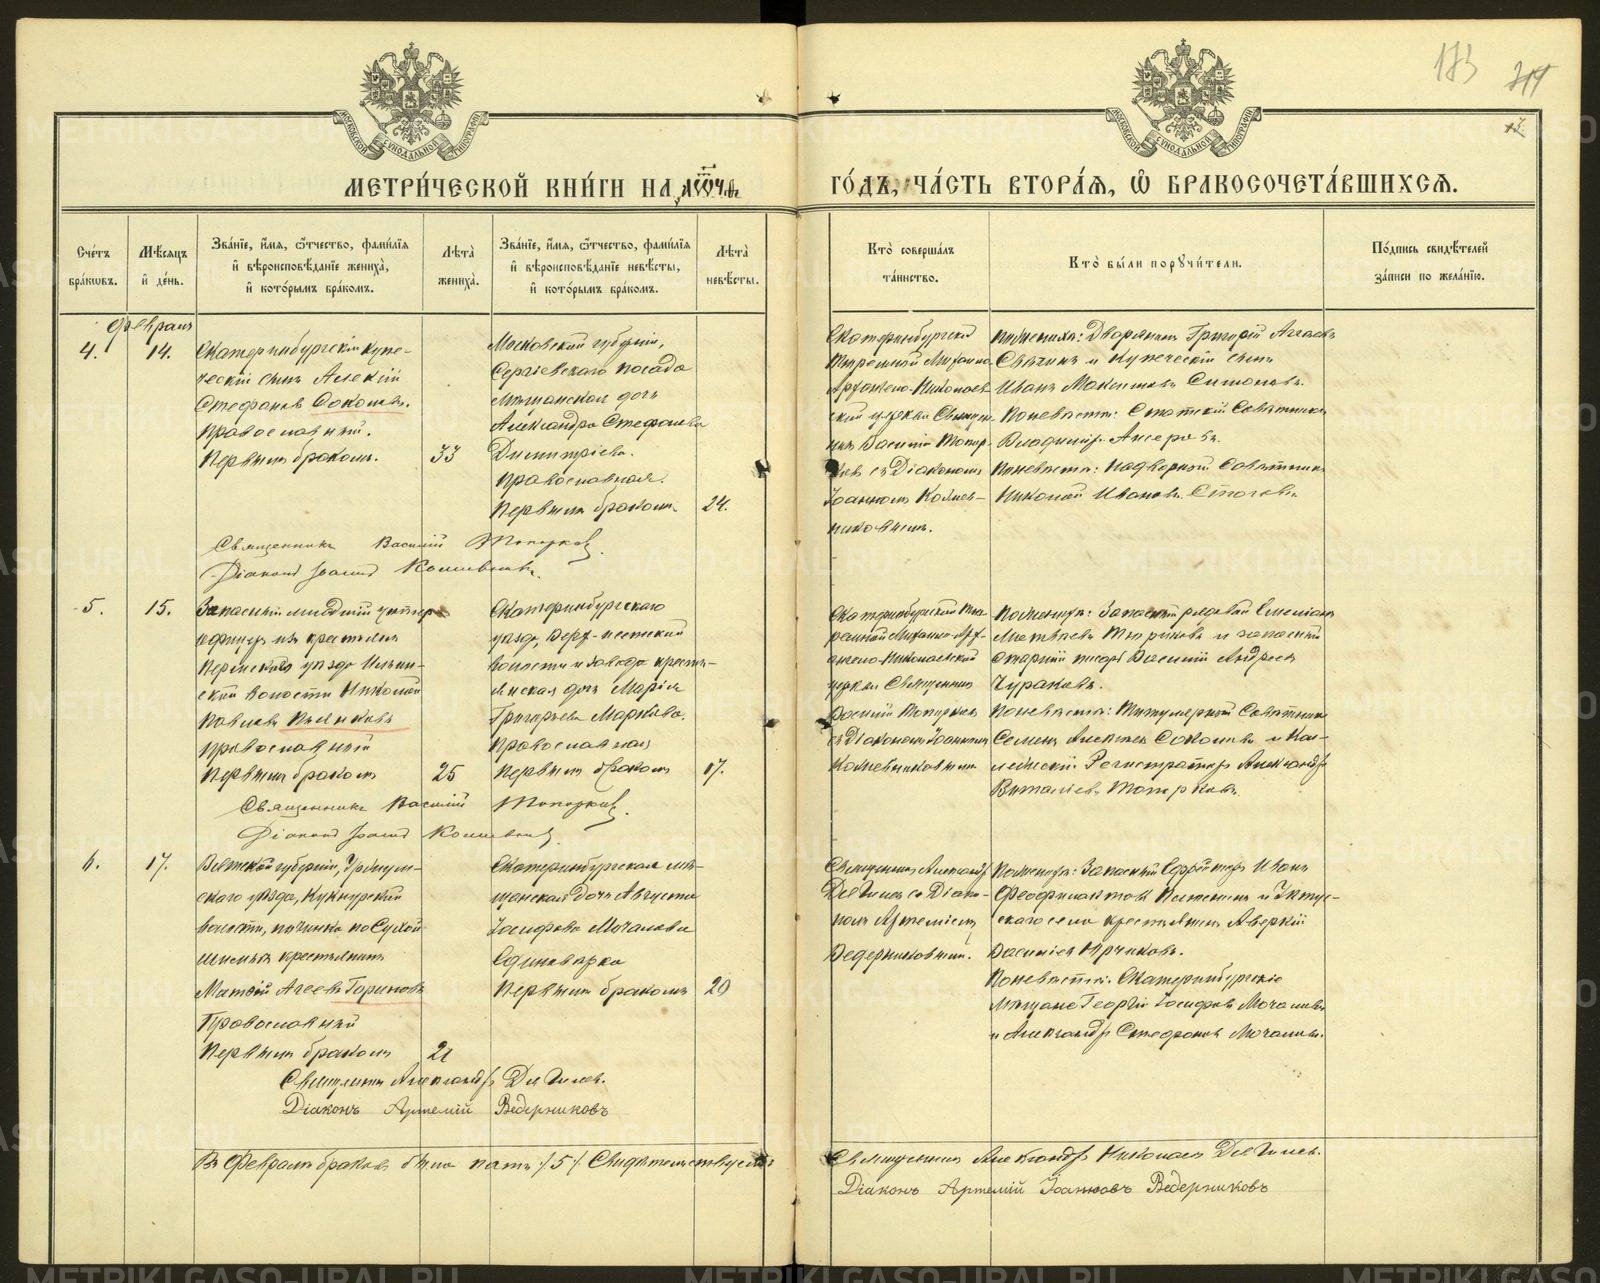 173
МОСКОВСКОЙ СѴНОДАЛЬНОЙ ТИПОГРАФІИ
МОСКОВСКОЙ СѴНОДАЛЬНОЙ ТИПОГРАФІИ
МЕТРИ́ЧЕСКОЙ КНИ́ГИ НА
ГО́ДЪ, ЧА́СТЬ ВТОРА́Я, Ѽ БРАКОСОЧЕТА́ВШИХСЯ.
Сче́тъ бра́кѡвъ.
Мѣ́сяцъ и҆ де́нь.
Зва́нїе, и҆́мя, ѻ҆́тчество, фами́лїя и҆ вѣроисповѣ́данїе жениха̀, и҆ кото́рымъ бра́комъ.
Лѣта̀ жениха̀.
Зва́нїе, и҆́мя, ѻ҆́тчество, фами́лїя и҆ вѣроисповѣ́данїе невѣ́сты, и҆ кото́рымъ бра́комъ.
Лѣта̀ невѣ́сты.
Кто̀ соверша́лъ та́инство.
Кто̀ бы́ли порꙋчи́тели.
По́дпись свидѣ́телей за́писи по жела́нїю.
Февраль
4.
14.
Екатеринбургскій купе-
ческій сынъ Алексій
Стефановъ Соколовъ.
Православный.
Первымъ бракомъ.
33
Московской губерніи,
Сергіевскаго посада
мѣщанская дочь
Александра Стефанова
Димитріева.
Православная.
Первымъ бракомъ.
24.
Екатеринбургской
тюремной Михаило-
Архангело-Николаев-
ской церкви Священ-
никъ Василій Топор-
ковъ съ Діакономъ
Іоанномъ Кожев-
никовымъ.
По женихѣ: Дворянинъ Григорій
и купеческій сынъ
Иванъ Максимовъ Симоновъ.
По невѣстѣ: Статскій Совѣтникъ
Владиміръ
По невѣстѣ: надворный Совѣтникъ
Николай Ивановъ
Священникъ Василій Топорковъ.
Діаконъ Іоаннъ Кожевниковъ.
5.
15.
Запасный младшій унтеръ
офицеръ изъ крестьянъ
Пермскаго уѣзда Ильин-
ской волости Николай
Павловъ Пьянковъ
православный
первымъ бракомъ
25
Екатеринбургскаго
уѣзда, Верх-Исетской
волости и завода кресть-
янская дочь Марія
Григорьева Маркова.
Православная
Первымъ бракомъ
17.
Екатеринбургской тю-
ремной Михаило-Арх-
ангело-Николаевской
церкви Священникъ
Василій Топорковъ
съ Діакономъ Іоанномъ
Кожевниковымъ
По женихѣ: Запасный рядовой Емельянъ
Матвѣевъ и запасный
старшій писарь Василій Андреевъ
Чураковъ.
По невѣстѣ: Титулярный Совѣтникъ
Семенъ Алексѣевъ Соколовъ и Кол-
лежскій Регистраторъ Александръ
Виталіевъ Топорковъ.
Священникъ Василій Топорковъ.
Діаконъ Іоаннъ Кожевниковъ.
6.
17.
Вятской губерніи, Уржум-
скаго уѣзда,
волости, починка по Сухой
крестьянинъ
Матвѣй Агеевъ Гориновъ
Православный
Первымъ бракомъ
21
Екатеринбургская мѣ-
щанская дочь Августа
Іосифова Мочалова
Единовѣрка
Первымъ бракомъ
20
Священникъ Александръ
Дягилевъ съ Діако-
номъ Артеміемъ
Ведерниковымъ.
По женихѣ: Запасный Ефрейторъ Иванъ
Феофилактовъ и Уктус-
скаго села крестьянинъ Аверкій
Василіевъ
По невѣстѣ: Екатеринбургскіе
мѣщане Георгій Іосифовъ Мочаловъ
и Александръ Стефановъ Мочаловъ.
Священникъ Александръ Дягилевъ.
Діаконъ Артемій Ведерниковъ
Въ Февралѣ браковъ было пять /5/. Свидѣтельствуемъ:
Священникъ Александръ Николаевъ Дягилевъ.
Діаконъ Артемій Іоанновъ Ведерниковъ